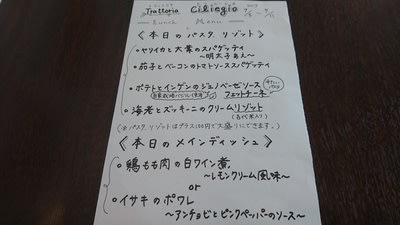 Trattoria Ciliegio
Lunch Menu
《本日のパスタ、リゾット》
・ヤリイカと大葉のスパゲッティ
〜明太子あえ〜
・茄子とベーコンのトマトソーススパゲッティ
・ポテトとインゲンのジェノベーゼソース
フェットチーネ
・海老とズッキーニのクリームリゾット
(古代米入り)
(※パスタ、リゾットはプラス100円で大盛りにできます。)
《本日のメインディッシュ》
・鶏もも肉の白ワイン煮
〜レモンクリーム風味〜
or
・イサキのポワレ
〜アンチョビとピンクペッパーのソース〜